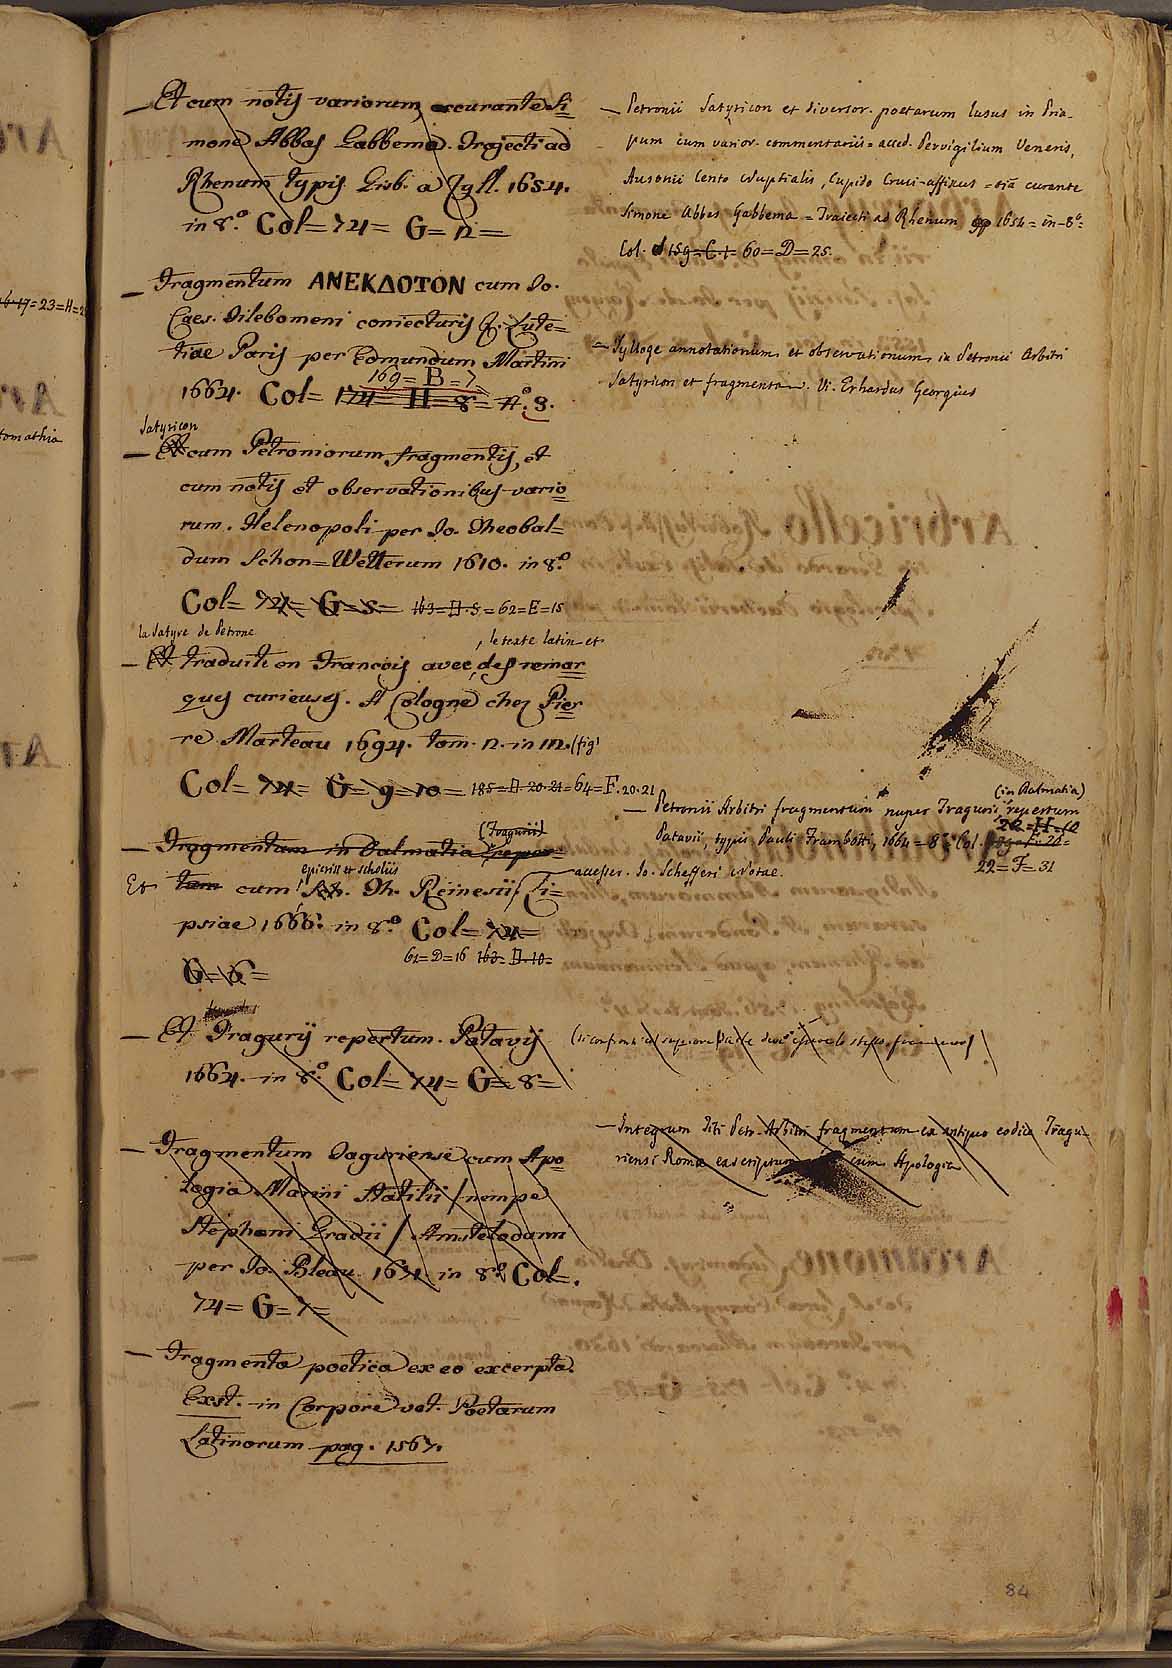 — Et cum notis variorum, accurante Si=
mone Abbas Gabbema. Trajecti ad
Rhenum typis Gisb. a Zyll. 1654.
in 8.º Col= 74= G= 12=
— Fragmentum ΑΝΕΚΔΟΤΟΝ cum Io.
Caes. Tilebomeni coniecturis &. Lute=
tiae Paris per Edmundum Martini
169= B= 7
1664. Col= 174= H= 8= Aº. 3.
Satyricon
— Et cum Petroniorum fragmentis, et
cum notis et observationibus vario=
rum. Helenopoli per Io. Theobal=
dum Schon=Wetterum 1610. in 8.º
Col= 74= G= 5= 163= D. 5= 62= E= 15
la Satyre de Petrone , le texte latin et
— Et traduite en Francois avec des remar=
ques curieuses. A Cologne chez Pier=
re Marteau 1694. tom. 2. in 12. (fig)
Col= 74= G= 9= 10= 185= D. 20. 21= 64= F. 20. 21
(Tragurii)
— Fragmentum in Dalmatia repert=
epicrisi et scholiis
Et tum cum Sch. Th. Reinesii, Li=
psiae 1666. in 8.º Col= 74=
62= D= 16 163= D. 10=
G= 6=
— Et Tragurij repertum. Patavij
1664. in 8.º Col= 74= G= 8=
— Fragmentum Taguriense cum Apo=
logia Marini Statilii / nempe
Stephani Gradii / Amstelodami
per Io. Bleau. 1671. in 8.º Col=.
74= G= 7=
— Fragmenta poetica ex eo excerpta.
Exst. in Corpore vet. Poetarum
Latinorum pag. 1567.
— Petronii Satyricon et diversor. poetarum lusus in Pria-
pum cum varior. commentariis= acced. Pervigilium Veneris,
Ausonii Cento Nuptialis, Cupido Cruci-affixus= oīa curante
Simone Abbes Gabbema= Traiecti ad Rhenum 1654= in-8º=
Col. 159= C. 1= 60= D= 25.
— Sylloge annotationum, et observationum in Petronii Arbitri
Satyricon et fragmenta. V. Erhardus Georgius
(in Dalmatia)
— Petronii Arbitri fragmentum nuper Tragurii repertum
22= H= 12
Patavii, typis Pauli Frambotti, 1664= 8º= Col.
accesser. Io. Schefferi Notae. 22= F= 31
— Integrum Titi Petr. Arbitri fragmentum ex antiquo codice Tragu-
riensi Romae exscriptum cum Apologia
84
16-17= 23= H= 2
tomathia